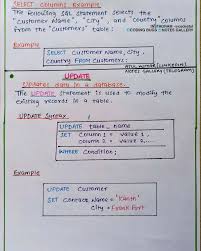 SELECT Columns Example
The following SQL statement selects the
"Customer Name", "City", and "Country" columns
From the "Customers" table:
CODING BUGS NOTES GALLERY
Example
SELECT Customer Name, City,
Country FROM Customers;
NOTES GALLERY (TELEGRAM)
UPDATE
Updates data in a database.
The UPDATE Statement is used to modify the
existing records in a table.
UPDATE Syntax
UPDATE table_name
SET Column 1 = value 1,
column 2 = value 2...
WHERE Condition;
Example
UPDATE Customer
SET Contact Name = 'Kanth'
City = Frank Fort